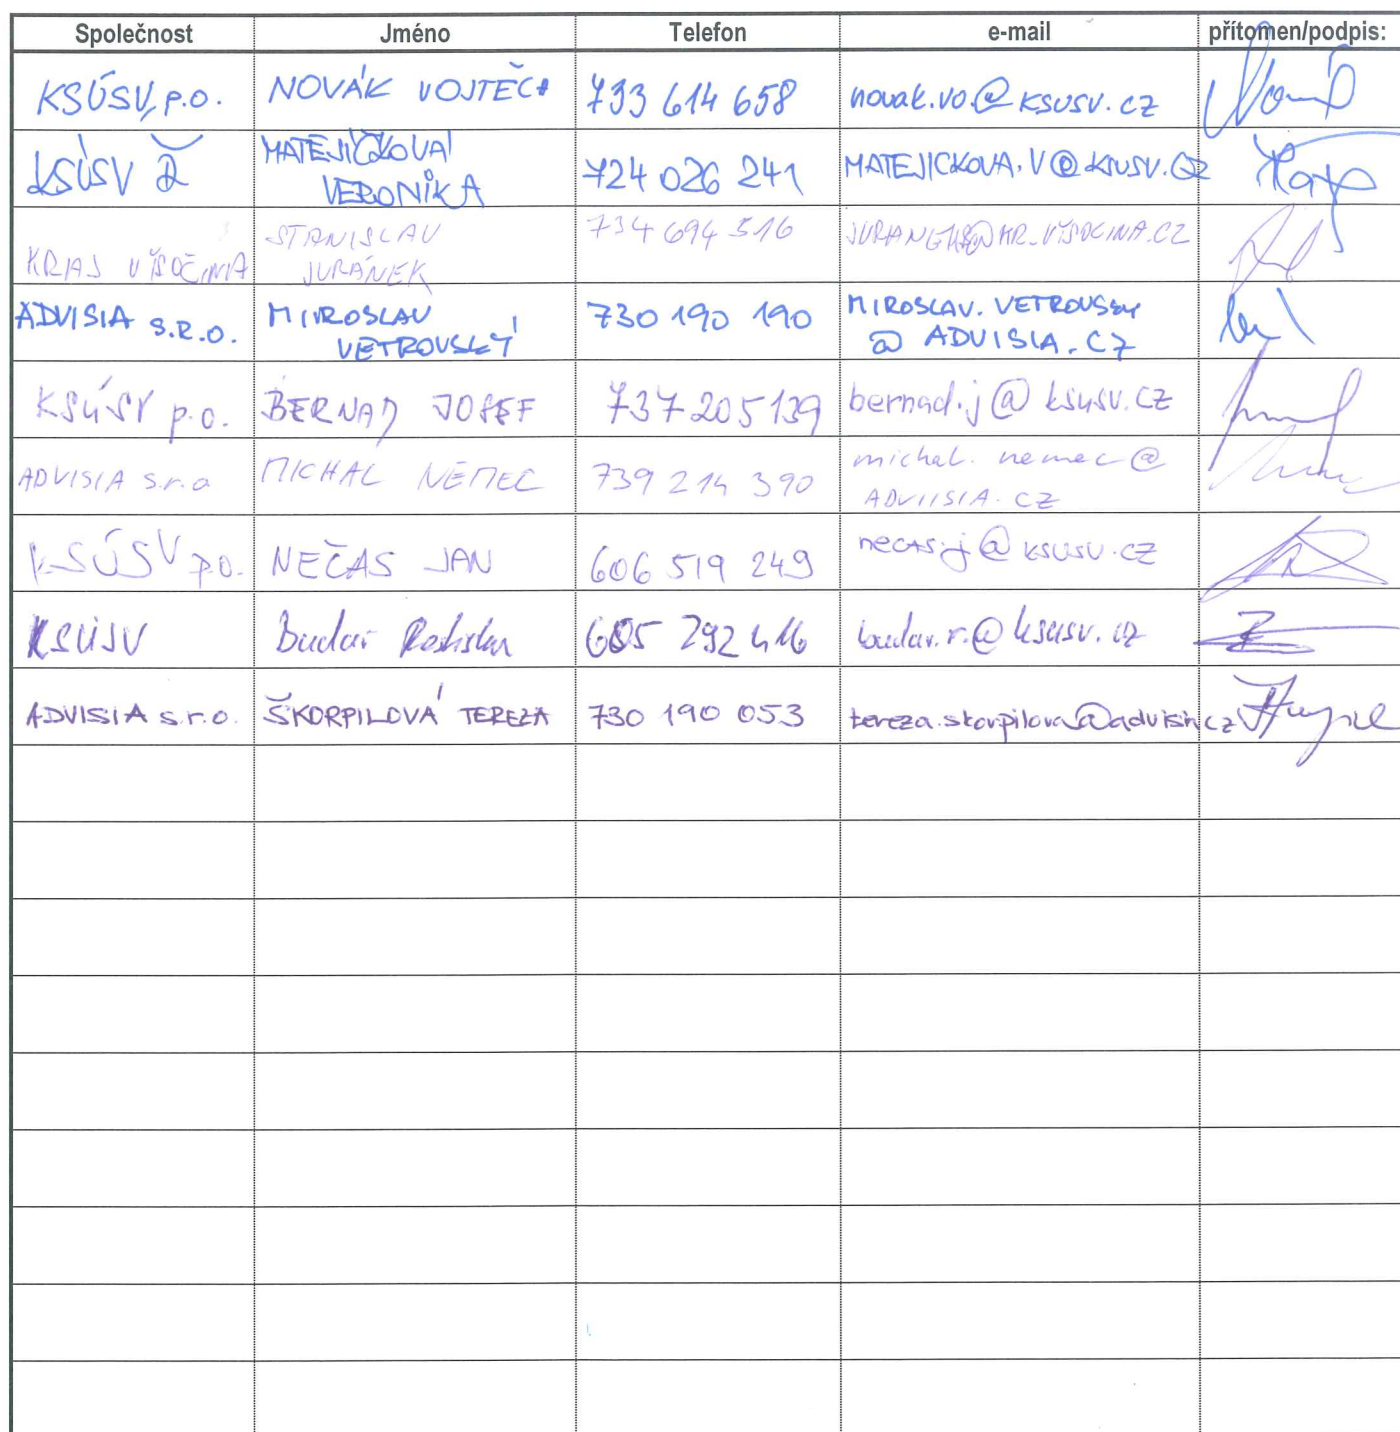 Společnost Jméno Telefon e-mail přítomen/podpis:
KSÚSV, p.o. NOVÁK VOJTĚCH 733 614 658 novak.vo.@ksusv.cz
KSÚSV Ž MATEJÍČKOVÁ VERONIKA 724 026 241 MATEJICKOVA.V@KSUSV.CZ
KRAJ VYSOČINA STANISLAV JURÁNEK 734 694 516
ADVISIA s.r.o. MIROSLAV VETROVSKÝ 730 190 190 MIROSLAV.VETROVSKY @ ADVISIA.CZ
KSÚSV p.o. BERNAD JOSEF 737 205 139 bernad.j@ksusv.cz
ADVISIA s.r.o MICHAL NĚMEC 739 214 390 michal.nemec@ ADVIISIA.CZ
KSÚSV p.o. NEČAS JAN 606 519 249 necas.j@ksusv.cz
KSÚSV Budar 292 416 budar.r.@ksusv.cz
ADVISIA s.r.o. ŠKORPILOVÁ TEREZA 730 190 053 tereza.skorpilova@advisia.cz